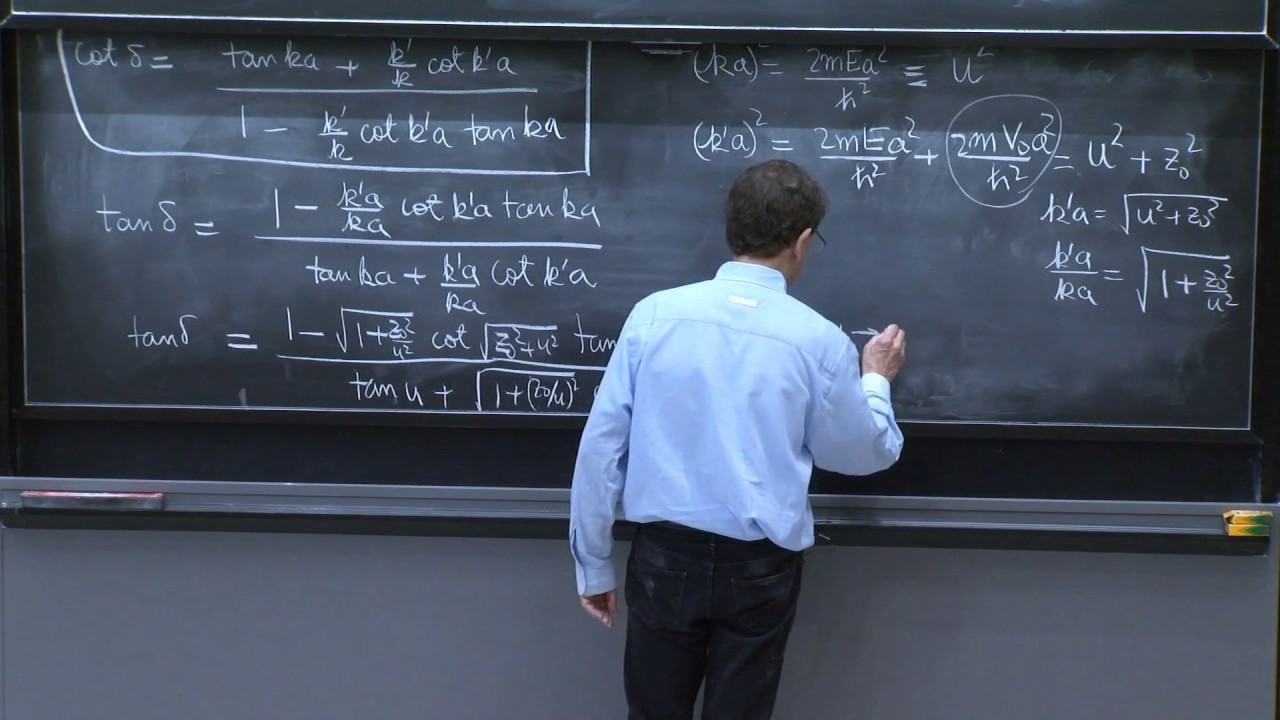 cot δ = (tan ka + k'/k cot k'a) / (1 − k'/k cot k'a tan ka)
tan δ = (1 − k'a/ka cot k'a tan ka) / (tan ka + k'a/ka cot k'a)
tan δ = (1 − √(1+z₀²/u²) cot √(z₀²+u²) tan / (tan u + √(1+(z₀/u)²)
(ka)² = 2mEa²/ħ² ≡ u²
(k'a)² = 2mEa²/ħ² + 2mV₀a²/ħ² = u² + z₀²
k'a = √(u²+z₀²)
k'a/ka = √(1 + z₀²/u²)